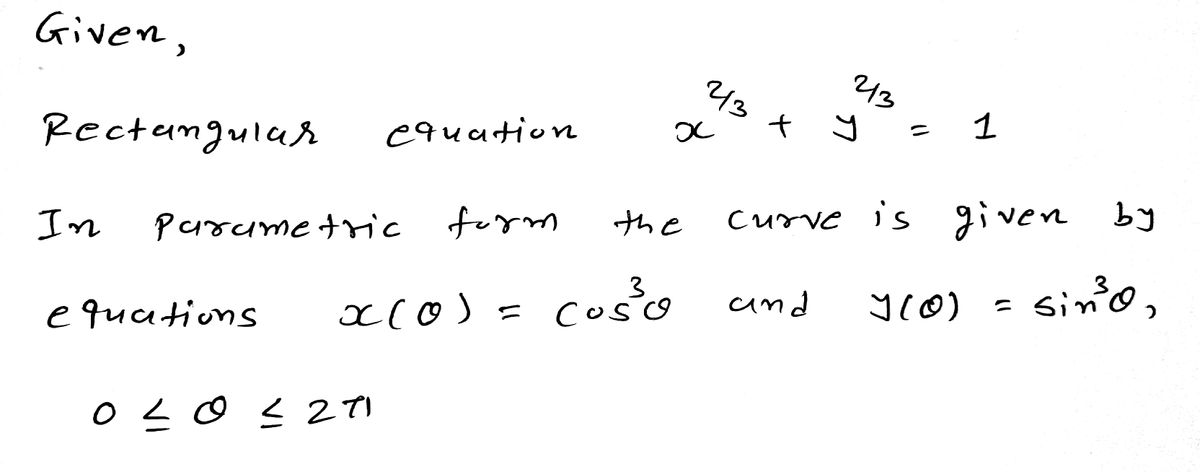 Given,
Rectangular equation x^{2/3} + y^{2/3} = 1
In parametric form the curve is given by
equations x(θ) = cos³θ and y(θ) = sin³θ,
0 ≤ θ ≤ 2π